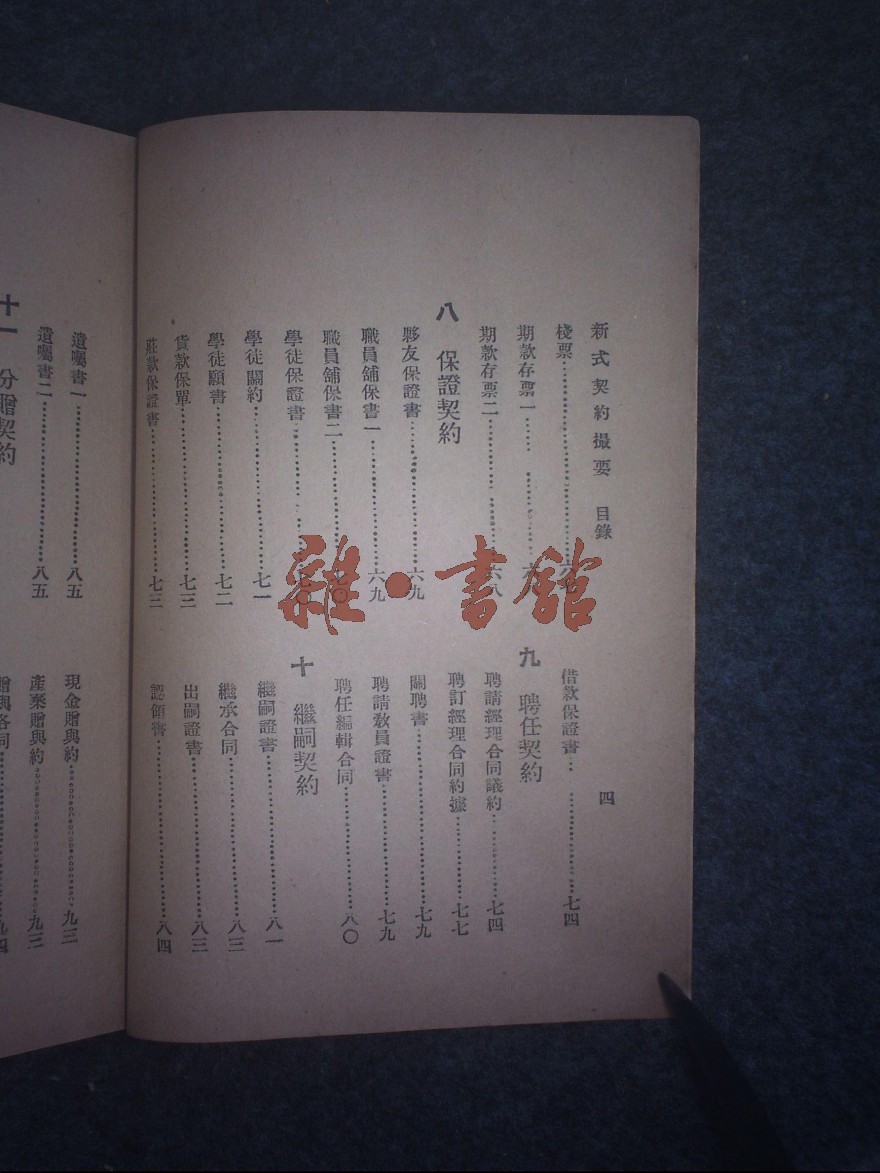 新式契約撮要 目錄
四
棧票……六七
期款存票一……六八
期款存票二……六八
八 保證契約
夥友保證書……六九
職員舖保書一……六九
職員舖保書二……七〇
學徒保證書……七〇
學徒關約……七一
學徒願書……七二
貨款保單……七三
莊款保證書……七三
借款保證書……七四
九 聘任契約
聘請經理合同議約……七四
聘訂經理合同約據……七七
關聘書……七九
聘請敎員證書……七九
聘任編輯合同……八〇
十 繼嗣契約
繼嗣證書……八一
繼承合同……八三
出嗣證書……八三
認領書……八四
遺囑書一……八五
遺囑書二……八五
十一 分贈契約
現金贈與約……九三
產業贈與約……九三
贈與各同……九四
雜·書館